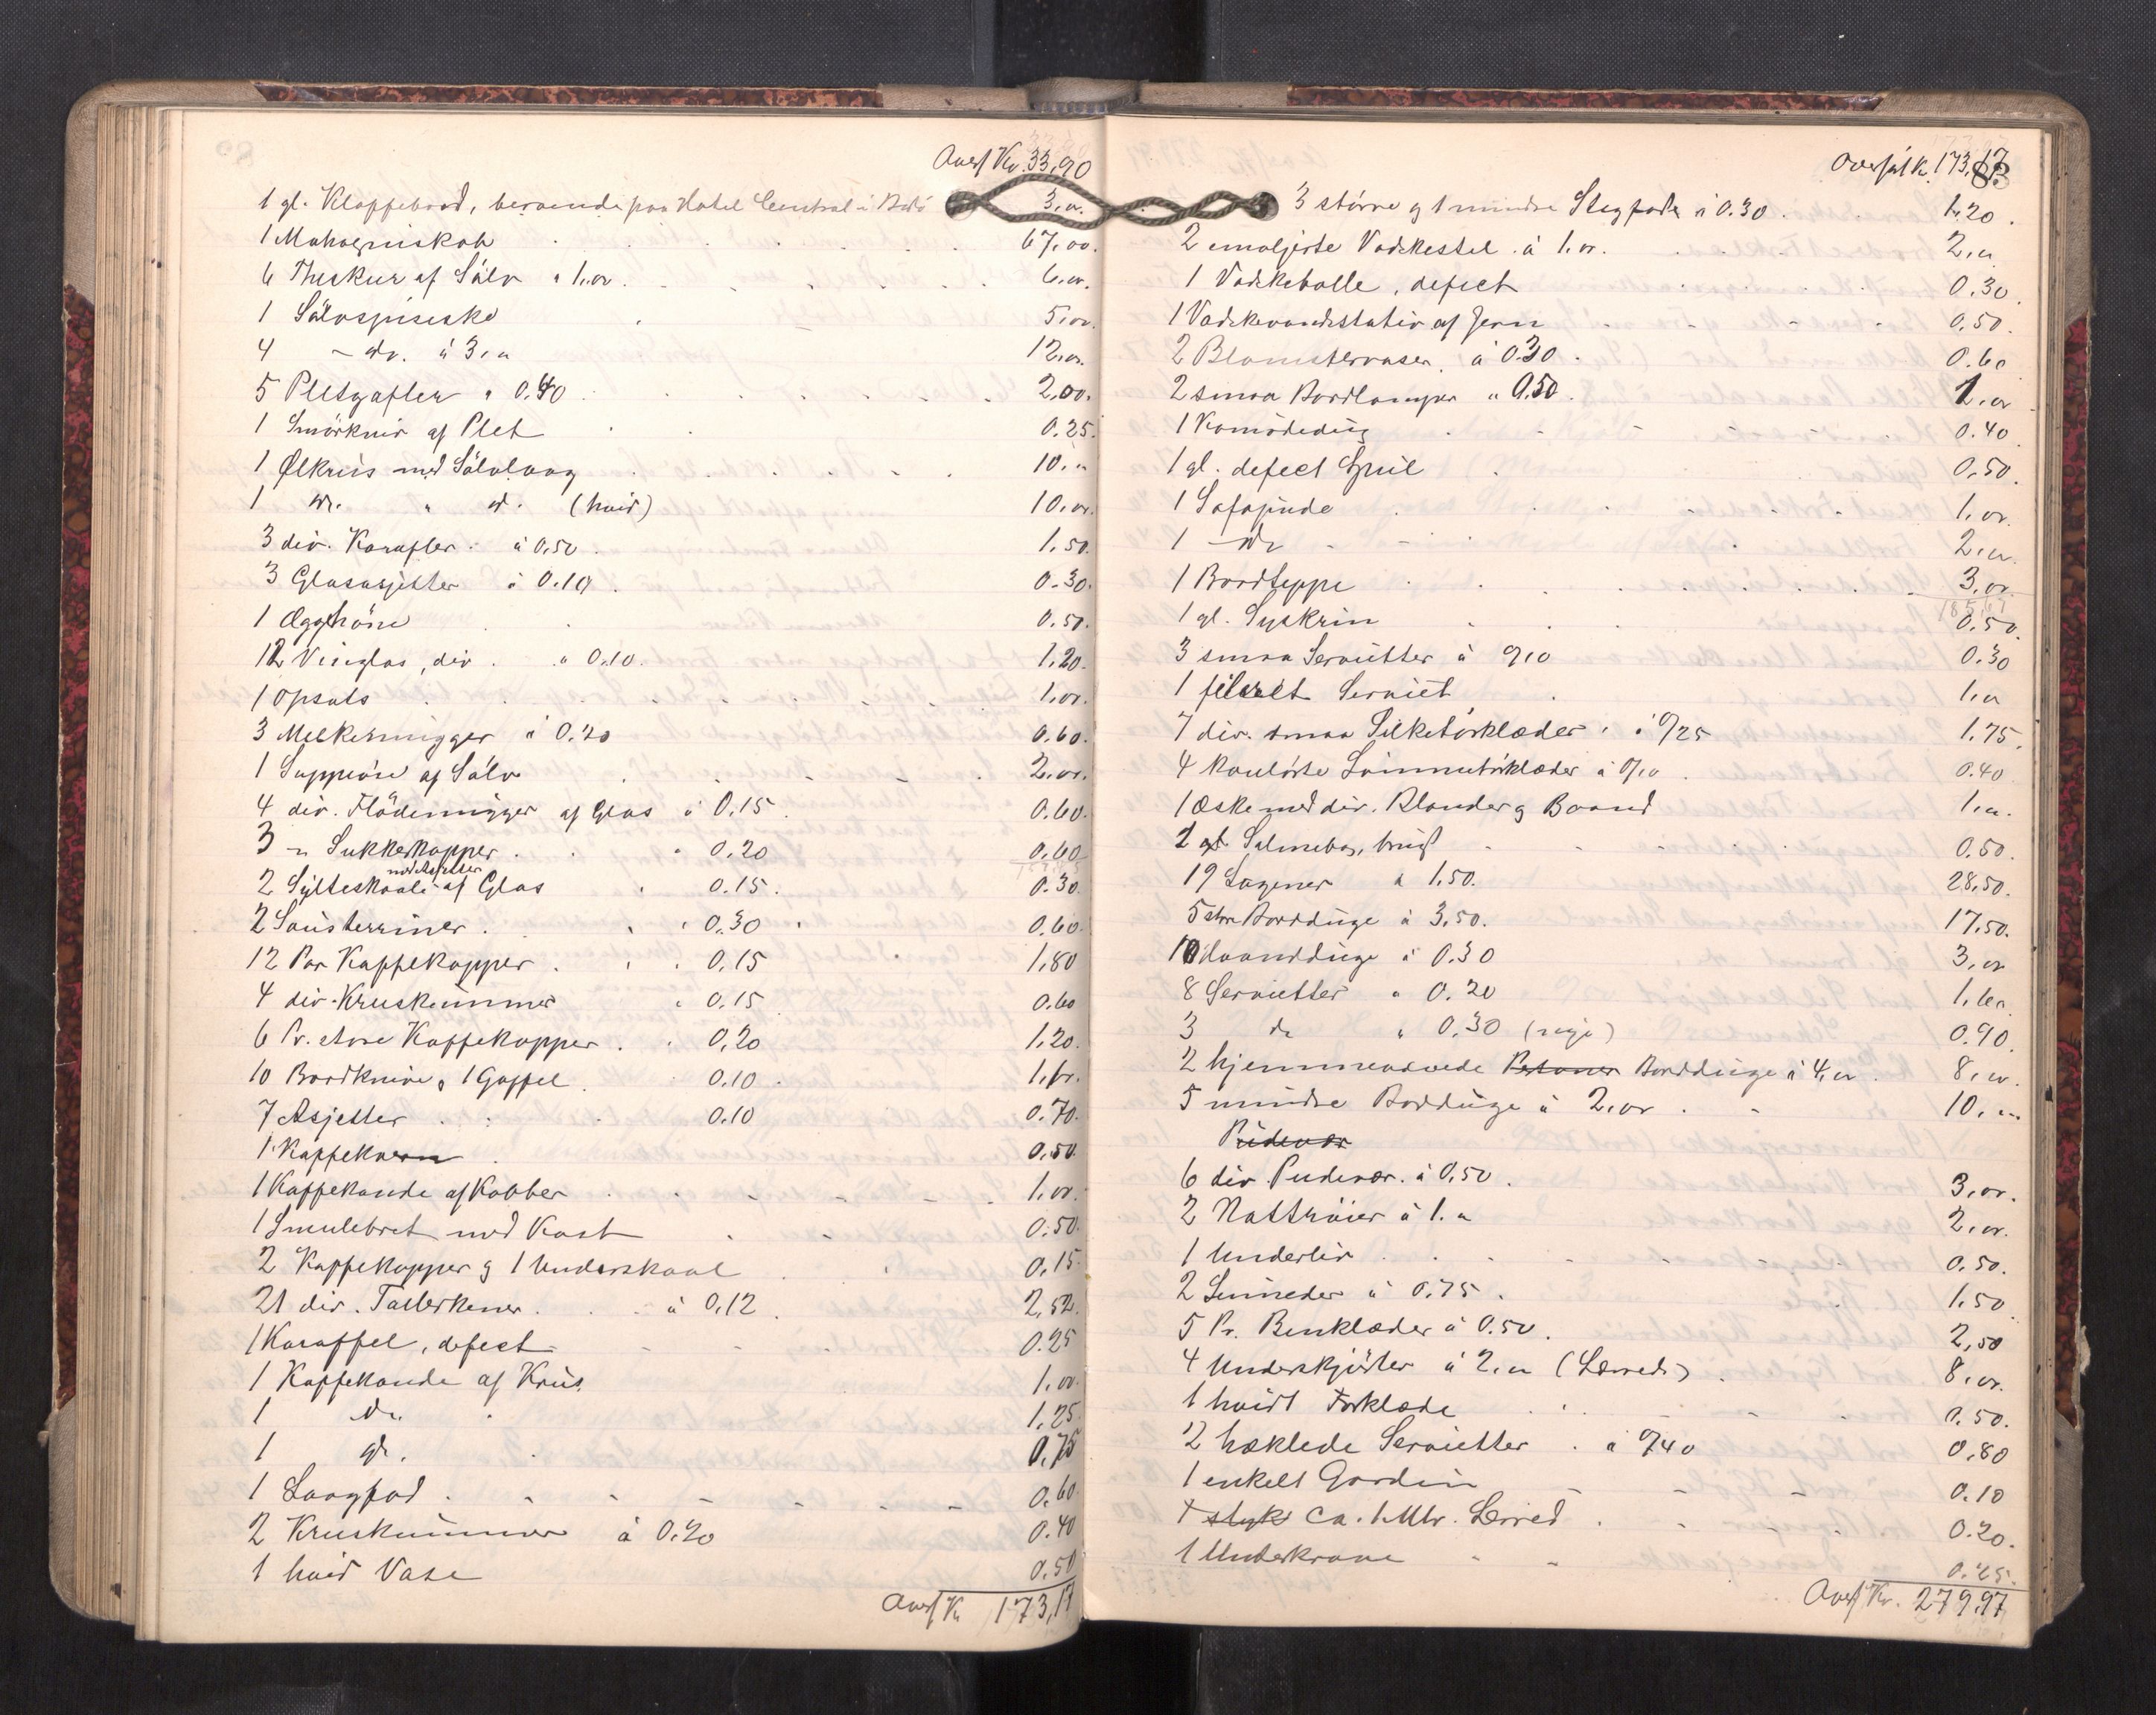 Overf Kr. 33,90
1 gl. Klappebord, beroende paa Hotel Central i Bodö 3,00
1 Mahogniskab 67,00
6 Theskeer af Sölv à 1,00 6,00
1 Sölvspiseske 5,00
4 - do. à 3,00 12,00
5 Pletgafler à 0.40 2,00
1 Smörkniv af Plet 0.25
1 Ølkrus med Sölvlaag 10,00
1 do. " do. (hvid) 10,00
3 div. Karafler à 0,50 1,50
3 Glasasjetter à 0.10 0.30
1 Ægghöne 0.50
12 Vinglas, div. à 0.10 1,20
1 Opsats 1,00
3 Melkemugger à 0.20 0.60
1 Suppeöse af Sölv 2,00
4 div. Flödemugger af Glas à 0.15 0.60
3 " Sukkerkopper " 0,20 0,60
2 Sylteskaale med Asjetter af Glas " 0.15 0.30
2 Sausterriner " 0,30 0,60
12 Par Kaffekopper " 0,15 1,80
4 div. Kruskummer " 0,15 0,60
6 Pr. store Kaffekopper " 0,20 1,20
10 Bordknive og 1 Gaffel 0,10 1,10
7 Asjetter 0,10 0.70
1 Kaffekvern 0,50
1 Kaffekande af Kobber 1,00
1 Smulebret med Kost 0.50
2 Kaffekopper og 1 Underskaal 0,15
21 div. Tallerkener à 0,12 2,52
1 Karaffel, defect 0.25
1 Kaffekande af Krus 1,00
1 do. 1,25
1 do. 0,75
1 Langfad 0,60
2 Kruskummer à 0.20 0.40
1 hvid Vase 0.50
Overf Kr 173,17
83
Overført Kr. 173,17
3 större og 1 mindre Stegfade à 0.30 1,20
2 emaljerte Vadskestel à 1,00 2,00
1 Vadskebolle, defect 0.30
1 Vadskevandsstativ af Jern 0,50
2 Blomstervaser à 0.30 0.60
2 smaa Bordlamper à 0.50 1,00
1 Komödedug 0.40
1 gl. defect Speil 0.50
1 Sofapude 1,00
1 - do 2,00
1 Bordteppe 3,00
1 gl. Syskrin 0.50
3 smaa Servietter à 0,10 0.30
1 fileret Serviet 1,00
7 div. smaa Silketörklæder à 0,25 1.75
4 koulörte Lommetörklæder à 0,10 0.40
1 Æske med div. Blonder og Baand 1,00
1 gl. Salmebog, brugt 0.50
19 Lagener à 1,50 28,50
5 store Bordduge à 3,50 17,50
10 Haandduge à 0.30 3,00
8 Servietter à 0.20 1,60
3 do à 0,30 (nye) 0,90
2 hjemmevævede Bordduge à 4,00 8,00
5 mindre Bordduge à 2,00 10,00
Pudevar
6 div Pudevar à 0,50 3,00
2 Nattröier à 1,00 2,00
1 Underliv 0,50
2 Linneder à 0.75 1.50
5 Pr. Benklæder à 0.50 2,50
4 Underskjörter à 2,00 (Lærreds) 8,00
1 hvidt Forklæde 0.50
2 hæklede Servietter à 0,40 0,80
1 enkelt Gardin 0.10
1 styk ca. 1 Mtr. Lærred 0.20
1 Underkrave 0.25
Overf Kr. 279,97